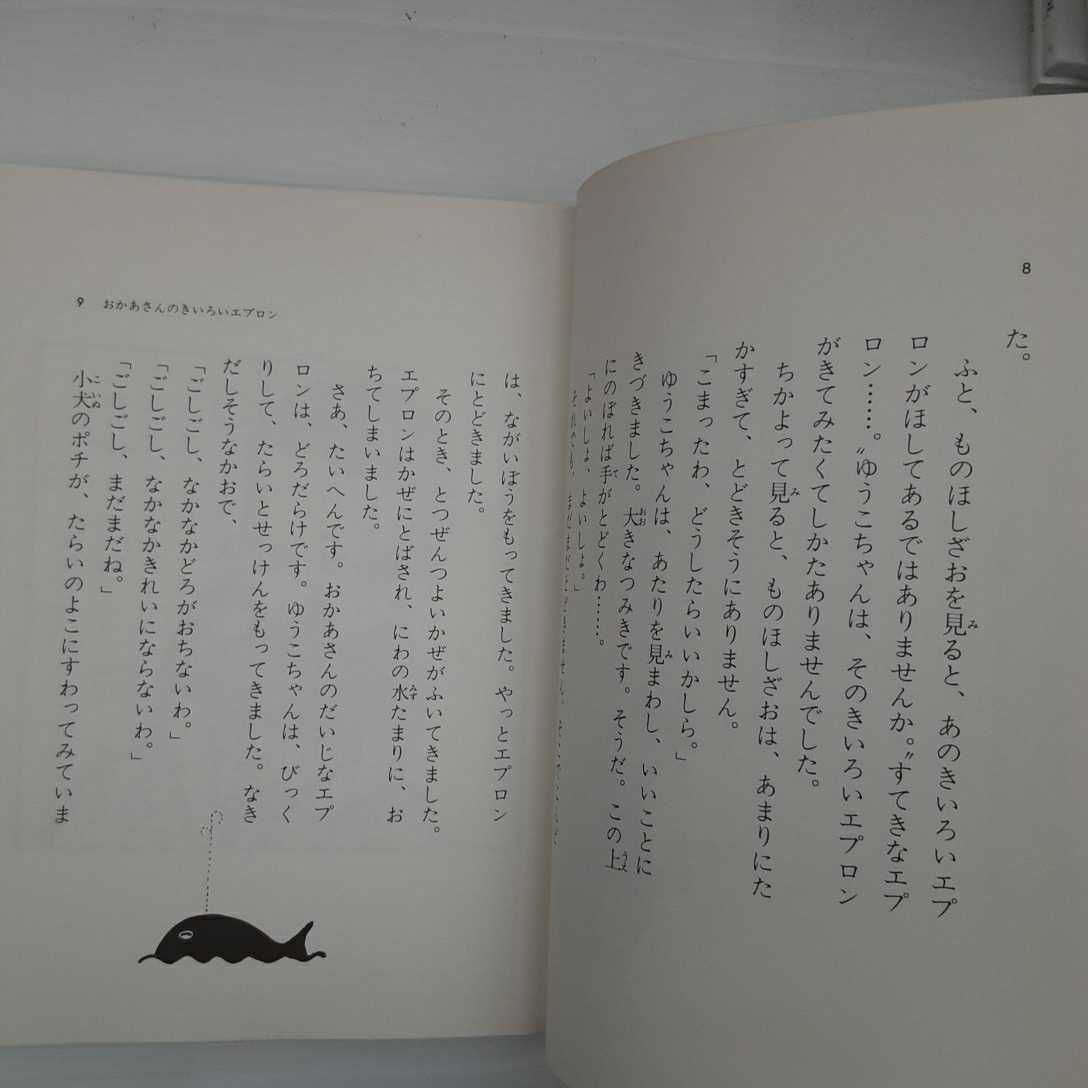 8
た。
ふと、ものほしざおを見ると、あのきいろいエプ
ロンがほしてあるではありませんか。〝すてきなエプ
ロン……。〟ゆうこちゃんは、そのきいろいエプロン
がきてみたくてしかたありませんでした。
ちかよって見ると、ものほしざおは、あまりにた
かすぎて、とどきそうにありません。
「こまったわ、どうしたらいいかしら。」
ゆうこちゃんは、あたりを見まわし、いいことに
きづきました。大きなつみきです。そうだ。この上
にのぼれば手がとどくわ……。
「よいしょ、よいしょ。」
それでも、まだまだとどきません。
9 おかあさんのきいろいエプロン
は、ながいぼうをもってきました。やっとエプロン
にとどきました。
そのとき、とつぜんつよいかぜがふいてきました。
エプロンはかぜにとばされ、にわの水たまりに、お
ちてしまいました。
さあ、たいへんです。おかあさんのだいじなエプ
ロンは、どろだらけです。ゆうこちゃんは、びっく
りして、たらいとせっけんをもってきました。なき
だしそうなかおで、
「ごしごし、なかなかどろがおちないわ。」
「ごしごし、なかなかきれいにならないわ。」
「ごしごし、まだまだね。」
小犬のポチが、たらいのよこにすわってみていま